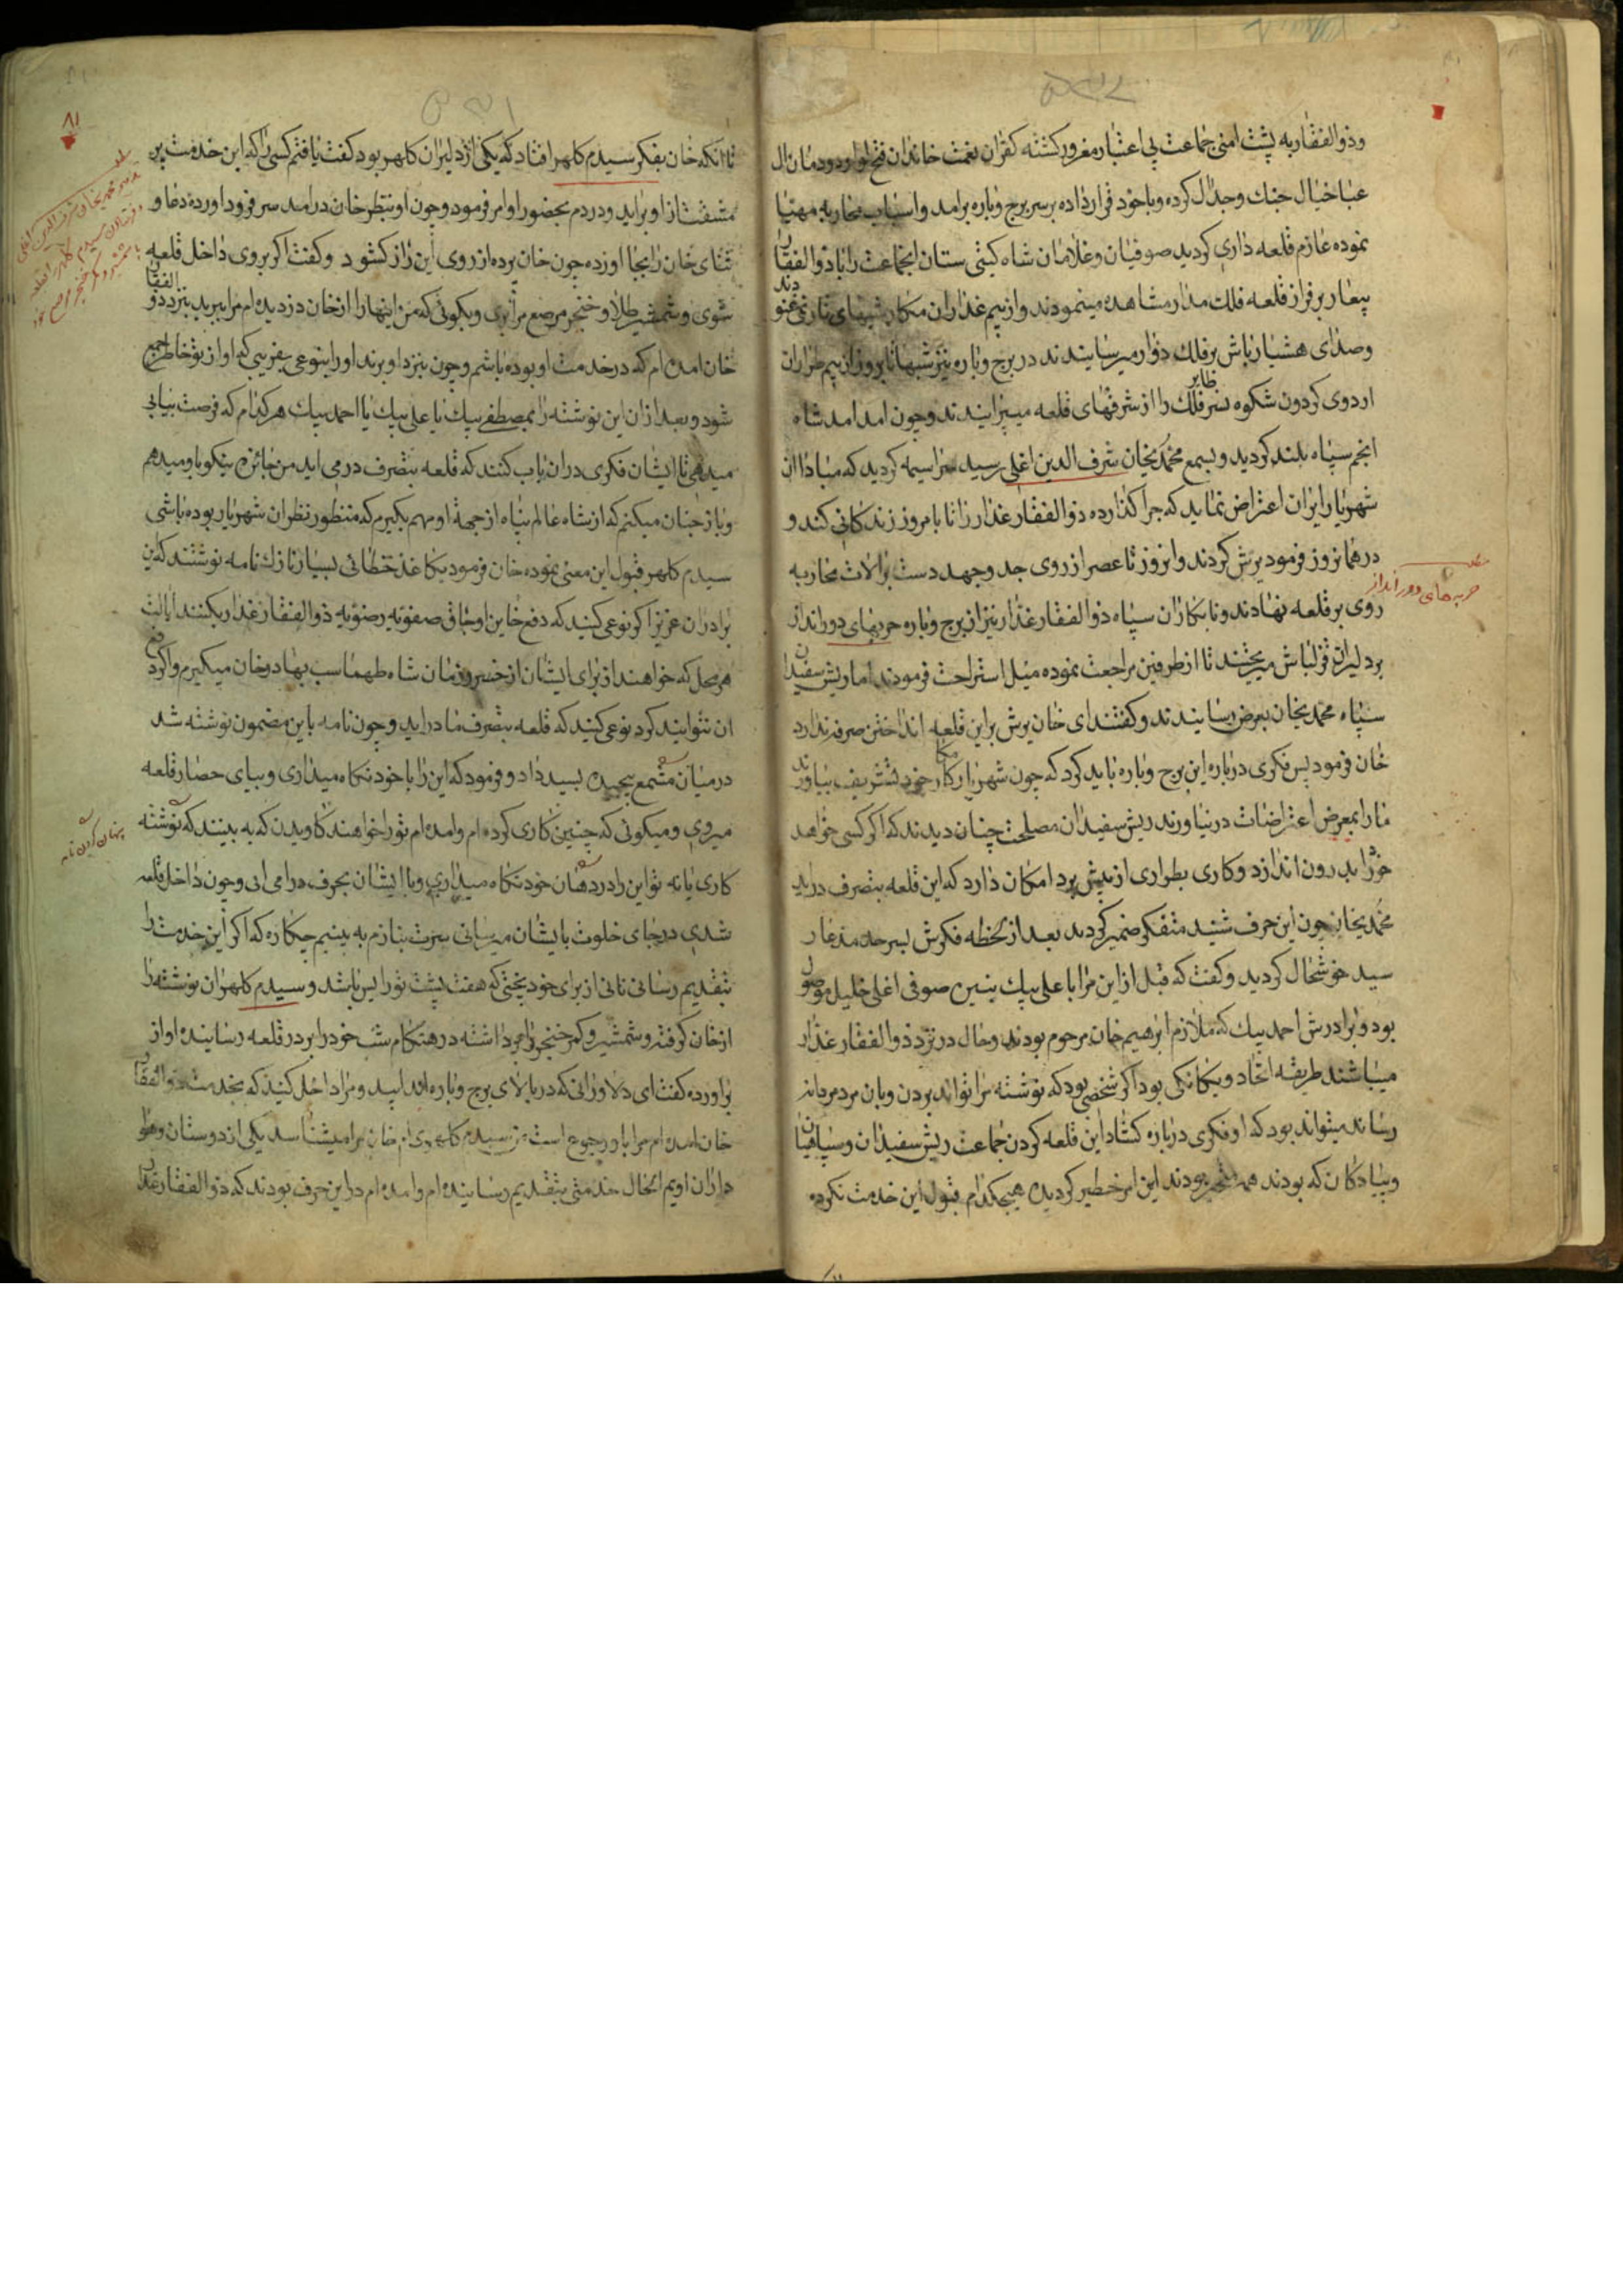 وذو الفقار به پشت امنی جماعت بی اعتبار مغرور کشته کفران نعمت خاندان ال
عبا خیال جنك وجدال کرده وباخود قرار داده بر سر برج وباره برامد واسباب محاربه مهیا
نموده عازم قلعه داری کردید صوفیان وغلامان شاه کیتی ستان انجماعت را با ذو الفقار
بر فراز قلعه فلك مدار مشاهده مینمودند وازبیم غداران مکار شبهای تار نمی غنودند
وصدای هشیار باش بر فلك دوار میرسانیدند در برج وباره نیز شبها تا بروز ازبیم
اردوی کردون شکوه نسر طایر فلك را از شرفهای قلعه میپرانیدند وچون امد امد شاه
انجم سپاه بلند کردید وبسمع محمدیخان شرف الدین اغلی رسید سراسیمه کردید که مبادا ان
شهریار ایران اعتراض نماید که چرا کذارده ذو الفقار غدار را تا بامروز زندکانی کند و
در همانروز فرمود یرش کردند وانروز تا عصر از روی جد وجهد دست بر الات محاربه
روی بر قلعه نهادند ونابکاران سپاه ذو الفقار غدار نیز از برج وباره حربهای دورانداز
بر دلیران قزلباش میریختند تا از طرفین مراجعت نموده میل استراحت فرمودند اما ریش سفیدان
سپاه محمدیخان بعرض رسانیدند وکفتند ای خان یرش براین قلعه انداختن صرفه ندارد
خان فرمود پس فکری درباره این برج وباره باید کرد که چون شهریار کامکار خود تشریف بیاورند
مارا بمعرض اعتراضات در نیاورند ریش سفیدان مصلحت چنان دیدند که اکر کسی خواهد
خودرا بدرون اندازد وکاری بطواری از پیش برد امکان دارد که این قلعه بتصرف دراید
محمدیخان چون این حرف شنید متفکر ضمیر کردید بعد از لحظه فکرش بسر حد مدعا ر
سید خوشحال کردید وکفت که قبل از این مرا با علی بیك بنسین صوفی اغلی خلیل موصول
بود وبرادرش احمد بیك که ملازم ابرهیم خان مرحوم بودند وحال در نزد ذو الفقار غدار
میباشند طریقه اتحاد ویکانکی بود اکر شخصی بود که نوشته مرا تواند بردن وبان مردمردانه
رساند میتواند بود که او فکری درباره کشاد این قلعه کردن جماعت ریش سفیدان وسپاهیان
وپیادکان که بودند همه متحیر بودند این امر خطیر کردیده هیچکدام قبول این خدمت نکرده
حربه های دورانداز
۸۱
تا انکه خان بفکر سیدم کاهر افتاد که یکی از دلیران کاهر بود کفت یافتم کسی را که این خدمت پر
مشقت از او براید ودردم بحضور او امر فرمود وچون او بنظر خان درامد سر فرود اورده دعا و
ثنای خان را بجا اورده چون خان پرده از روی این راز کشود وکفت اکر بروی داخل قلعه
شوی وشمشیر طلا وخنجر مرصع مرا ببری وبکوئی که من اینها را از خان دزدیده ام مرا ببرید بنزد ذو الفقار
خان امده ام که در خدمت او بوده باشم وچون بنزد او برند اورا بنوعی بفریبی که او از تو خاطر جمع
شود وبعد ازان این نوشته را بمصطفی بیك یا علی بیك یا احمد بیك هر کدام که فرصت بیابی
میدهی تا ایشان فکری دران باب کنند که قلعه بتصرف درمی اید من جائزه نیکو باو میدهم
وباز چنان میکنم که از شاه عالم پناه از جهة او مهم بکیرم که منظور نظران شهریار بوده باشی
سیدم کاهر قبول این معنی نموده خان فرمود بکاغذ خطائی بسیار نازك نامه نوشتند که این
برادران عزیز اکر نوعی کنید که دفع خاین اوجاق صفویه رضویه ذو الفقار غدار بکنند ایالت
هر محل که خواهند از برای ایشان از خسرو زمان شاه طهماسب بهادر خان میکیرم واکر دفع
ان نتوانید کرد نوعی کنید که قلعه بتصرف ما دراید وچون نامه باین مضمون نوشته شد
درمیان مشمع پیچیده بسید داد وفرمود که این را با خود نکاه میداری وبپای حصار قلعه
میروی ومیکوئی که چنین کاری کرده ام وامده ام تورا خواهند کاویدن که به بینند که نوشته
کاری یا نه تو این را در دهان خود نکاه میداری وبا ایشان بحرف در امی ائی وچون داخل قلعه
شدی در جای خلوت بایشان میرسانی سرت بنازم به بینیم چکاره که اکر این خدمت را
بتقدیم رسانی نانی از برای خود پختی که هفت پشت تورا بس باشد وسیدم کاهر ان نوشته را
از خان کرفته وشمشیر وکمر خنجر را برداشته در هنکام شب خودرا بر در قلعه رسانیده اواز
براورده کفت ای دلاورانی که در بالای برج وباره اید بیائید ومرا داخل کنید که بخدمت ذو الفقار
خان امده ام مرا باو رجوع است من سیدم کاهری ام خان مرا میشناسد یکی از دوستان وهوا
داران اویم الحال خدمتی بتقدیم رسانیده ام وامده ام در این حرف بودند که ذو الفقار غدار
پنهان کردن نامه